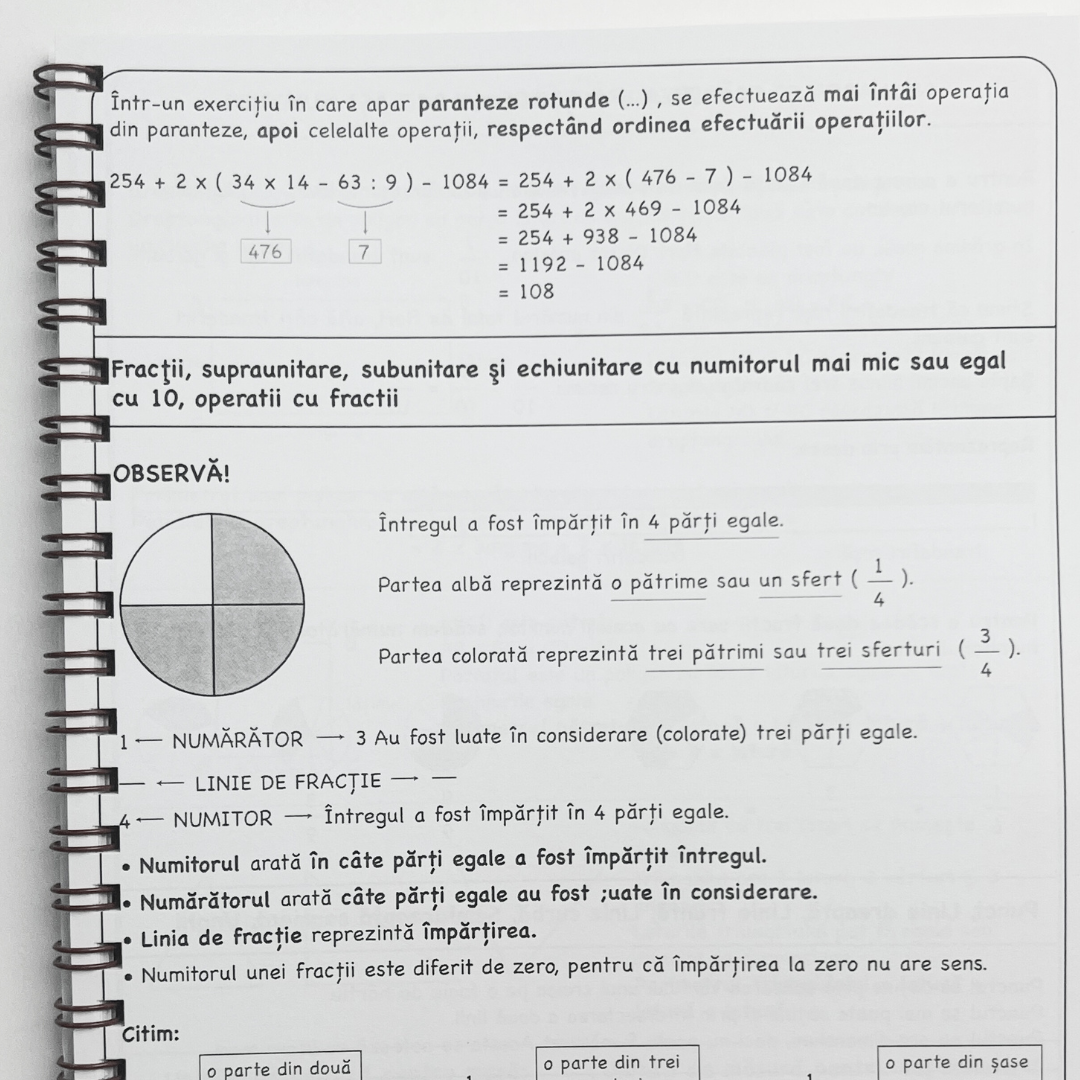 Într-un exercițiu în care apar paranteze rotunde (...) , se efectuează mai întâi operația
din paranteze, apoi celelalte operații, respectând ordinea efectuării operațiilor.
254 + 2 x ( 34 x 14 - 63 : 9 ) - 1084 = 254 + 2 x ( 476 - 7 ) - 1084
= 254 + 2 x 469 - 1084
476 7 = 254 + 938 - 1084
= 1192 - 1084
= 108
Fracţii, supraunitare, subunitare şi echiunitare cu numitorul mai mic sau egal
cu 10, operatii cu fractii
OBSERVĂ!
Întregul a fost împărțit în 4 părți egale.
Partea albă reprezintă o pătrime sau un sfert ( 1/4 ).
Partea colorată reprezintă trei pătrimi sau trei sferturi ( 3/4 ).
1 ← NUMĂRĂTOR → 3 Au fost luate în considerare (colorate) trei părți egale.
— ← LINIE DE FRACȚIE → —
4 ← NUMITOR → Întregul a fost împărțit în 4 părți egale.
• Numitorul arată în câte părți egale a fost împărțit întregul.
• Numărătorul arată câte părți egale au fost ;uate în considerare.
• Linia de fracție reprezintă împărțirea.
• Numitorul unei fracții este diferit de zero, pentru că împărțirea la zero nu are sens.
Citim:
o parte din două o parte din trei o parte din șase